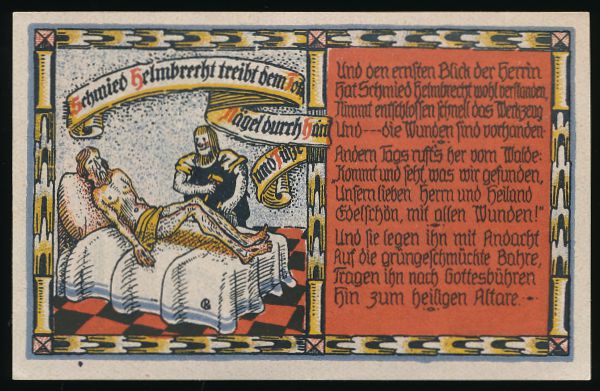 Schmied Helmbrecht treibt dem Jost
Nägel durch Händ
und Füße
Und den ernsten Blick der Herrin
Hat Schmied Helmbrecht wohl verstanden,
Nimmt entschlossen schnell das Werkzeug
Und---die Wunden sind vorhanden.
Andern Tags rufts her vom Walde:
"Kommt und seht, was wir gefunden,
Unsern lieben Herrn und Heiland
Edelschön, mit allen Wunden!"
Und sie legen ihn mit Andacht
Auf die grüngeschmückte Bahre,
Tragen ihn nach Gottesbühren
Hin zum heiligen Altare.--